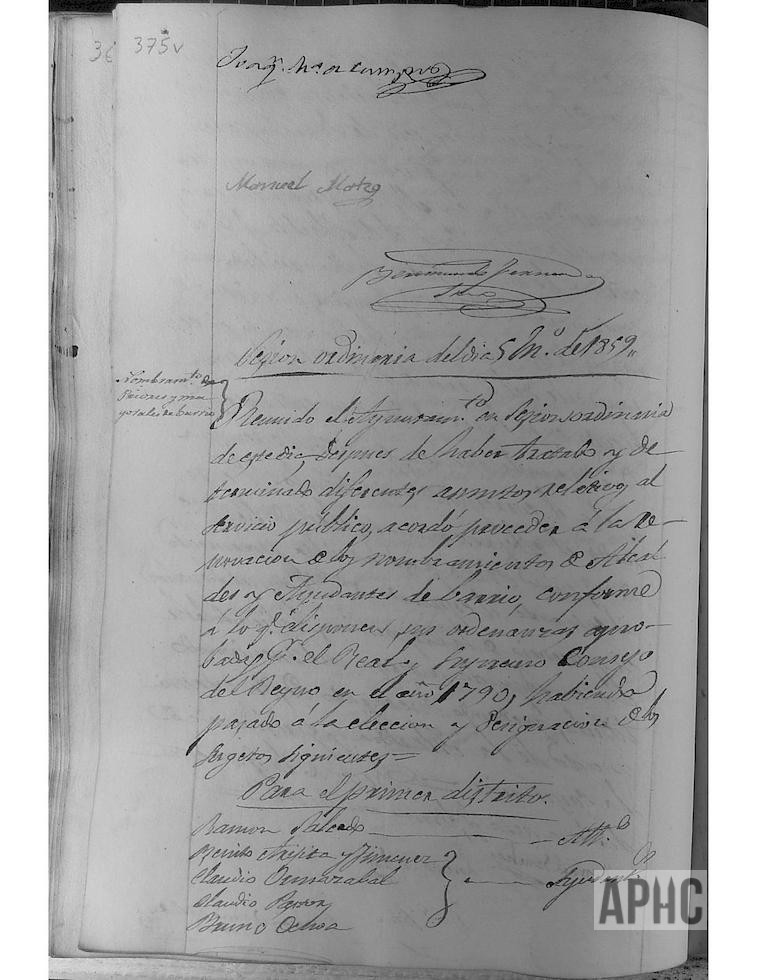 36 375v
Manuel
Sesion ordinaria del dia 5 Mº. de 1859,,
Nombramto. de
Priores y ma
yorales de barrio
Reunido el Ayuntamto. en sesion ordinaria
de este dia, despues de haber tratado y de
terminado diferentes asuntos relativos al
servicio público, acordó proceder á la re-
novacion de los nombramientos de Alcal
des y Ayudantes de barrio, conforme
á lo qe. disponen sus ordenanzas apro-
badas pr. el Real y Supremo Consejo
del Reyno en el año 1790, habiendo
pasado á la eleccion y designacion de los
sugetos siguientes=
Para el primer distrito.
Ramon Salcedo — Alle.
Benito y Jimenez
Claudio Ormazabal
Claudio Ayudants.
Bruno Ochoa
APHC